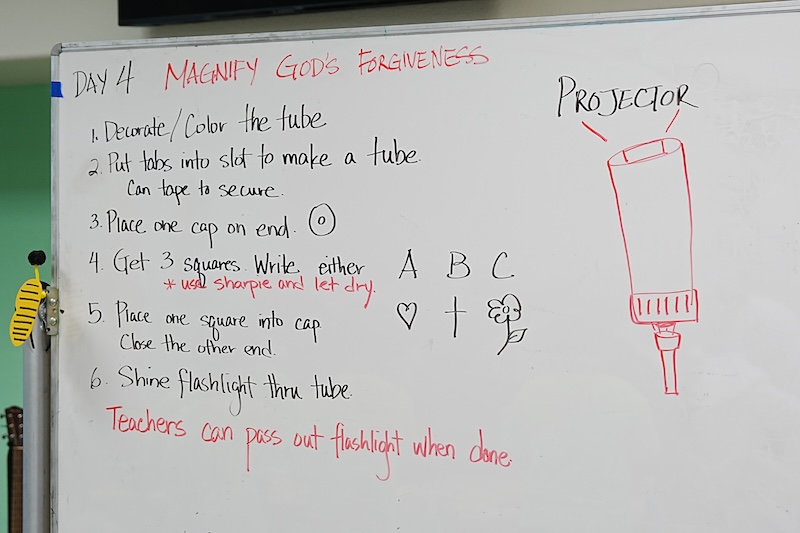 DAY 4 MAGNIFY GOD'S FORGIVENESS
PROJECTOR
1. Decorate/Color the tube
2. Put tabs into slot to make a tube.
Can tape to secure.
3. Place one cap on end.
4. Get 3 squares. Write either A B C
* use sharpie and let dry.
5. Place one square into cap
Close the other end.
6. Shine flashlight thru tube.
Teachers can pass out flashlight when done.